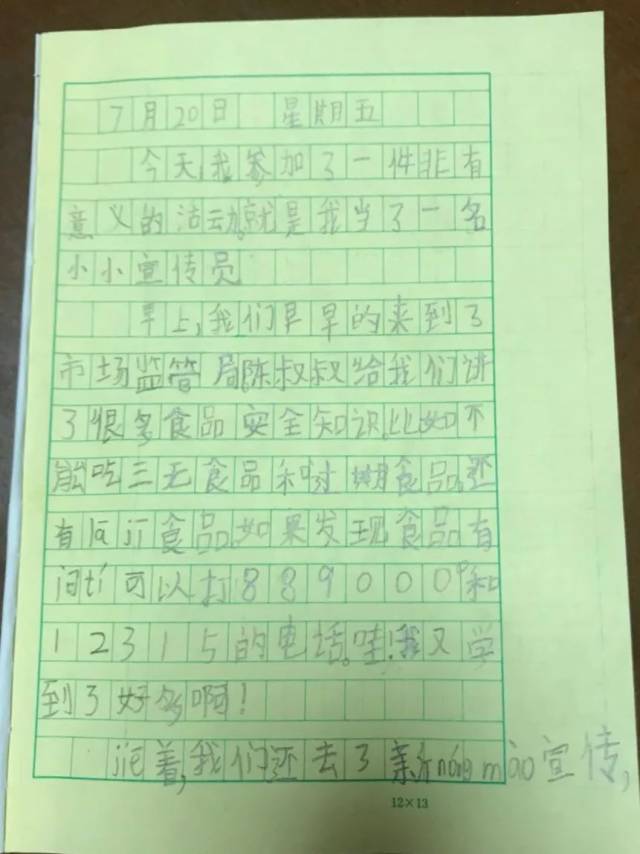 7月20日 星期五
今天,我参加了一件非有
意义的活动,就是我当了一名
小小宣传员
早上,我们早早的来到了
市场监管局,陈叔叔给我们讲
了很多食品安全知识,比如不
能吃三无食品和过期食品,还
有lā jī食品,如果发现食品有
问tí可以打8890000和
12315的电话。哇!我又学
到了好多啊!
jiē着,我们还去了新nóng mào宣传,
12×13